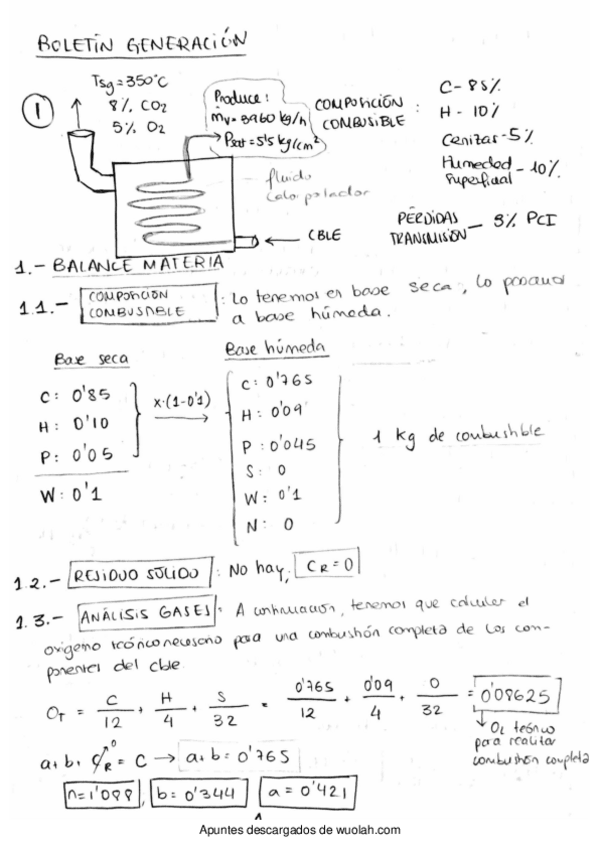 BOLETÍN GENERACIÓN
1
Tsg = 350°C
8% CO2
5% O2
Produce:
ṁv = 3960 kg/h
Psat = 5'5 kg/cm²
COMPOSICIÓN COMBUSIBLE :
C - 85%
H - 10%
Cenizas - 5%
Humedad superficial - 10%
fluido
calo portador
CBLE
PÉRDIDAS TRANSMISIÓN — 3% PCI
1.- BALANCE MATERIA
1.1.- COMPOSICIÓN COMBUSTIBLE : Lo tenemos en base seca, lo pasamos
a base húmeda.
Base seca
C: 0'85
H: 0'10
P: 0'05
W: 0'1
x·(1-0'1)
Base húmeda
C: 0'765
H: 0'09
P: 0'045
S: 0
W: 0'1
N: 0
1 kg de combustible
1.2.- RESIDUO SÓLIDO : No hay; CR = 0
1.3.- ANÁLISIS GASES : A continuación, tenemos que calcular el
oxígeno teórico necesario para una combustión completa de los com-
ponentes del cble.
OT = C/12 + H/4 + S/32 = 0'765/12 + 0'09/4 + 0/32 = 0'08625
O2 teórico
para realizar
combustión completa
a+b+CR = C → a+b = 0'765
0
n=1'088, b=0'344 a=0'421
Apuntes descargados de wuolah.com